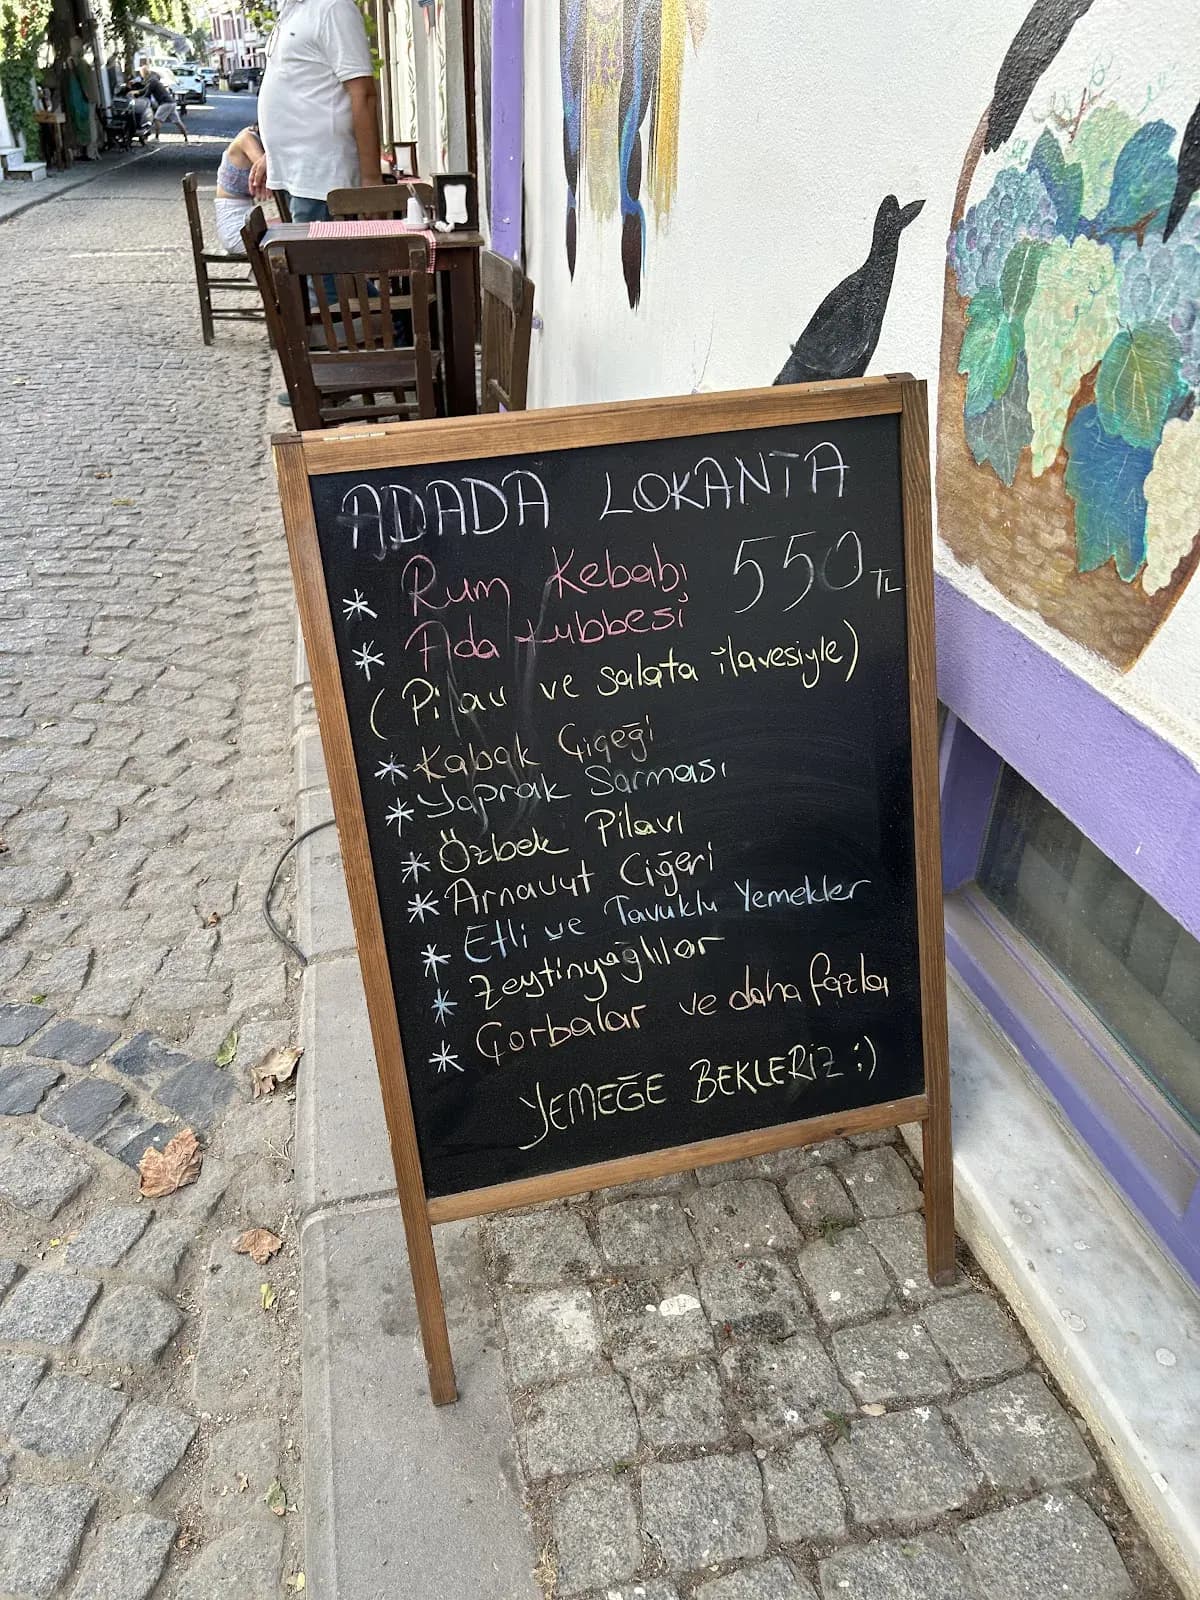 ADADA LOKANTA
* Rum Kebabı 550 TL
* Ada Lubbesi
(Pilav ve salata ilavesiyle)
* Kabak Çiçeği
* Yaprak Sarması
* Özbek Pilavı
* Arnavut Ciğeri
* Etli ve Tavuklu Yemekler
* Zeytinyağlılar
* Çorbalar ve daha fazla
YEMEĞE BEKLERİZ :)